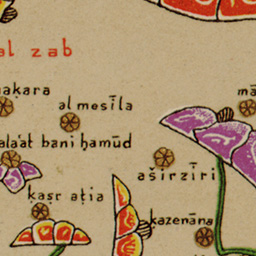 al zab
akara
al mesīla
mā
alaàt bani ḥamūd
aširzīri
kaṣr aṭia
kazenāna